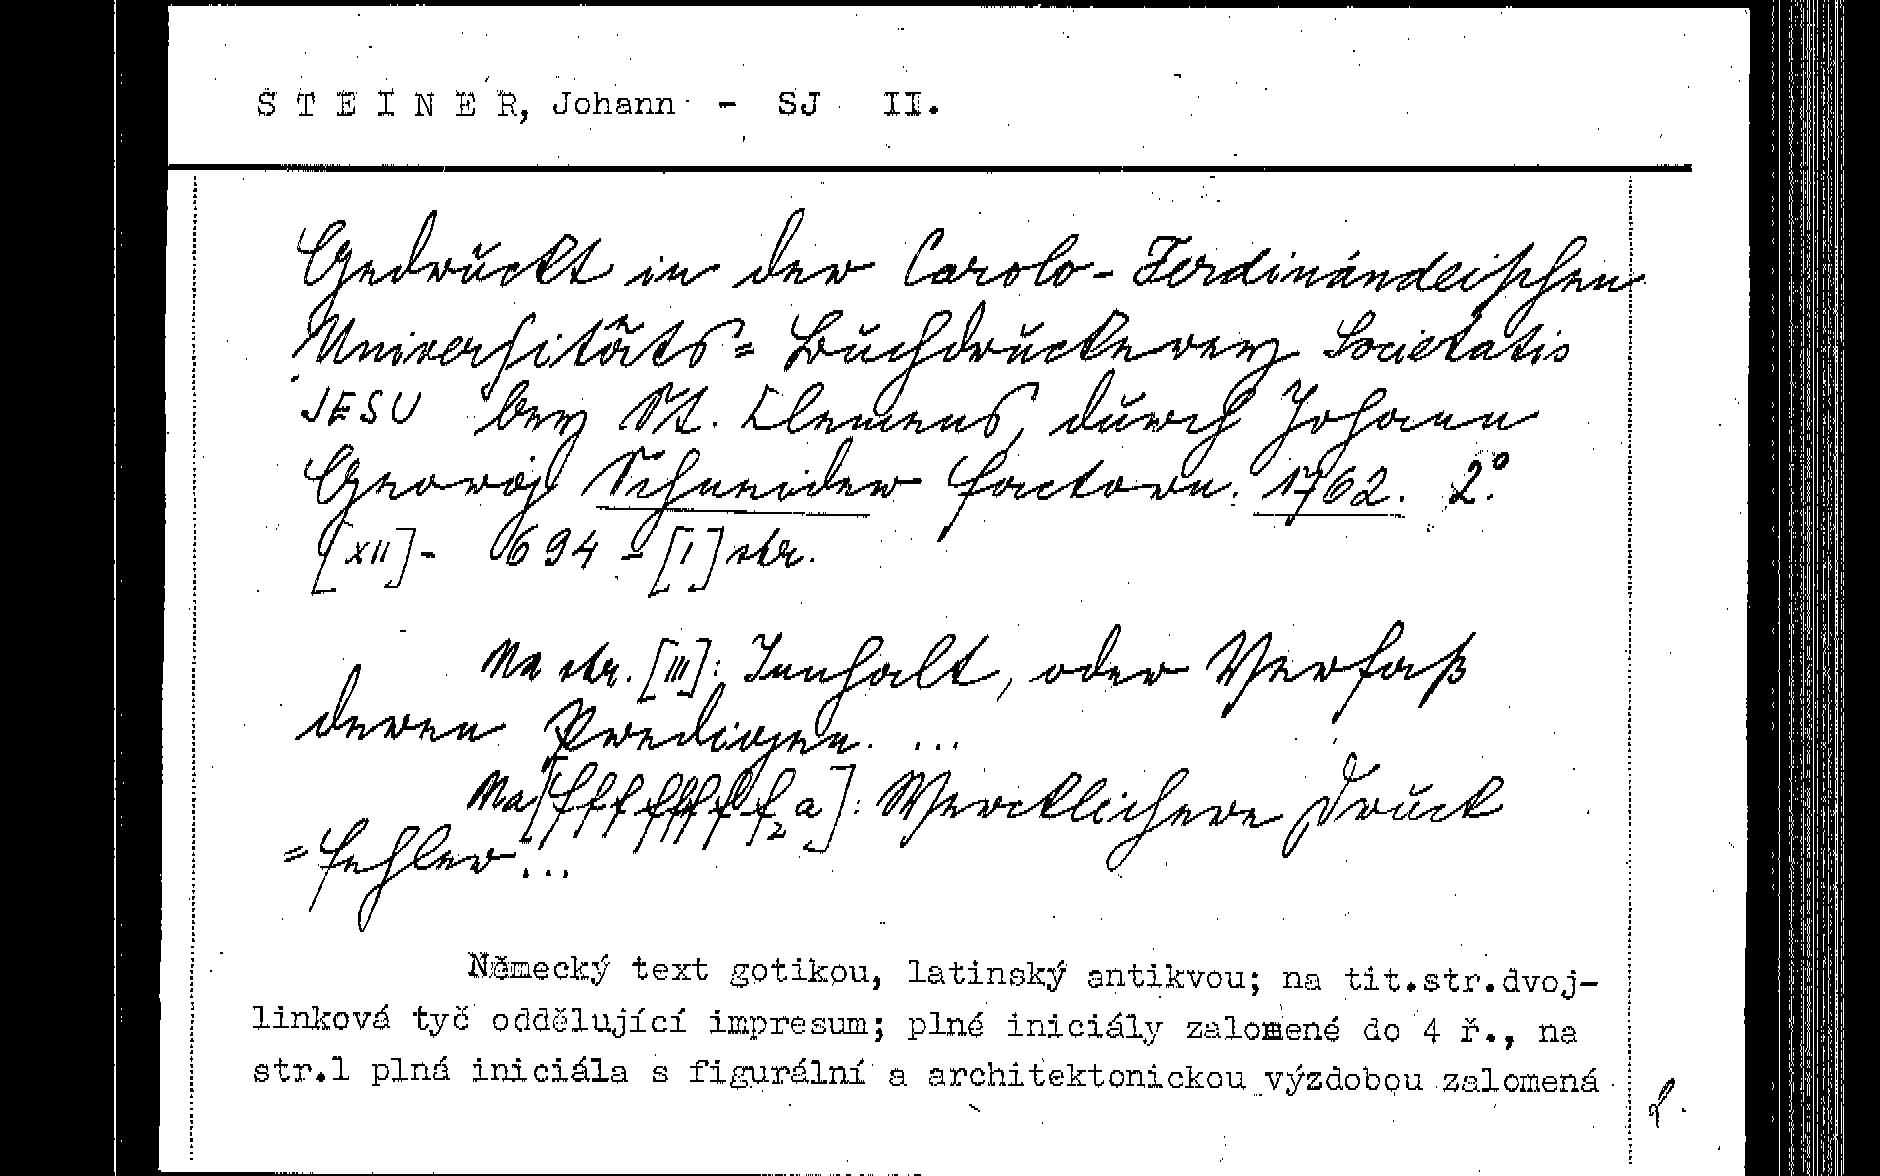 S T E I N E R, Johann - SJ II.
Gedruckt in der Carolo-Ferdinandeischen
Universitäts= Buchdruckerey Societatis
JESU bey St. Clemens, durch Johann
Georg Schneider Factorn. 1762. 2.°
[XII] - 694 - [I] str.
Na str. [III]: Innhalt, oder Verfaß
deren Predigen. ...
Mercklichere Druck
=fehler ...
Německý text gotikou, latinský antikvou; na tit.str.dvoj-
linková tyč oddělující impresum; plné iniciály zalomené do 4 ř., na
str.1 plná iniciála s figurální a architektonickou výzdobou zalomená